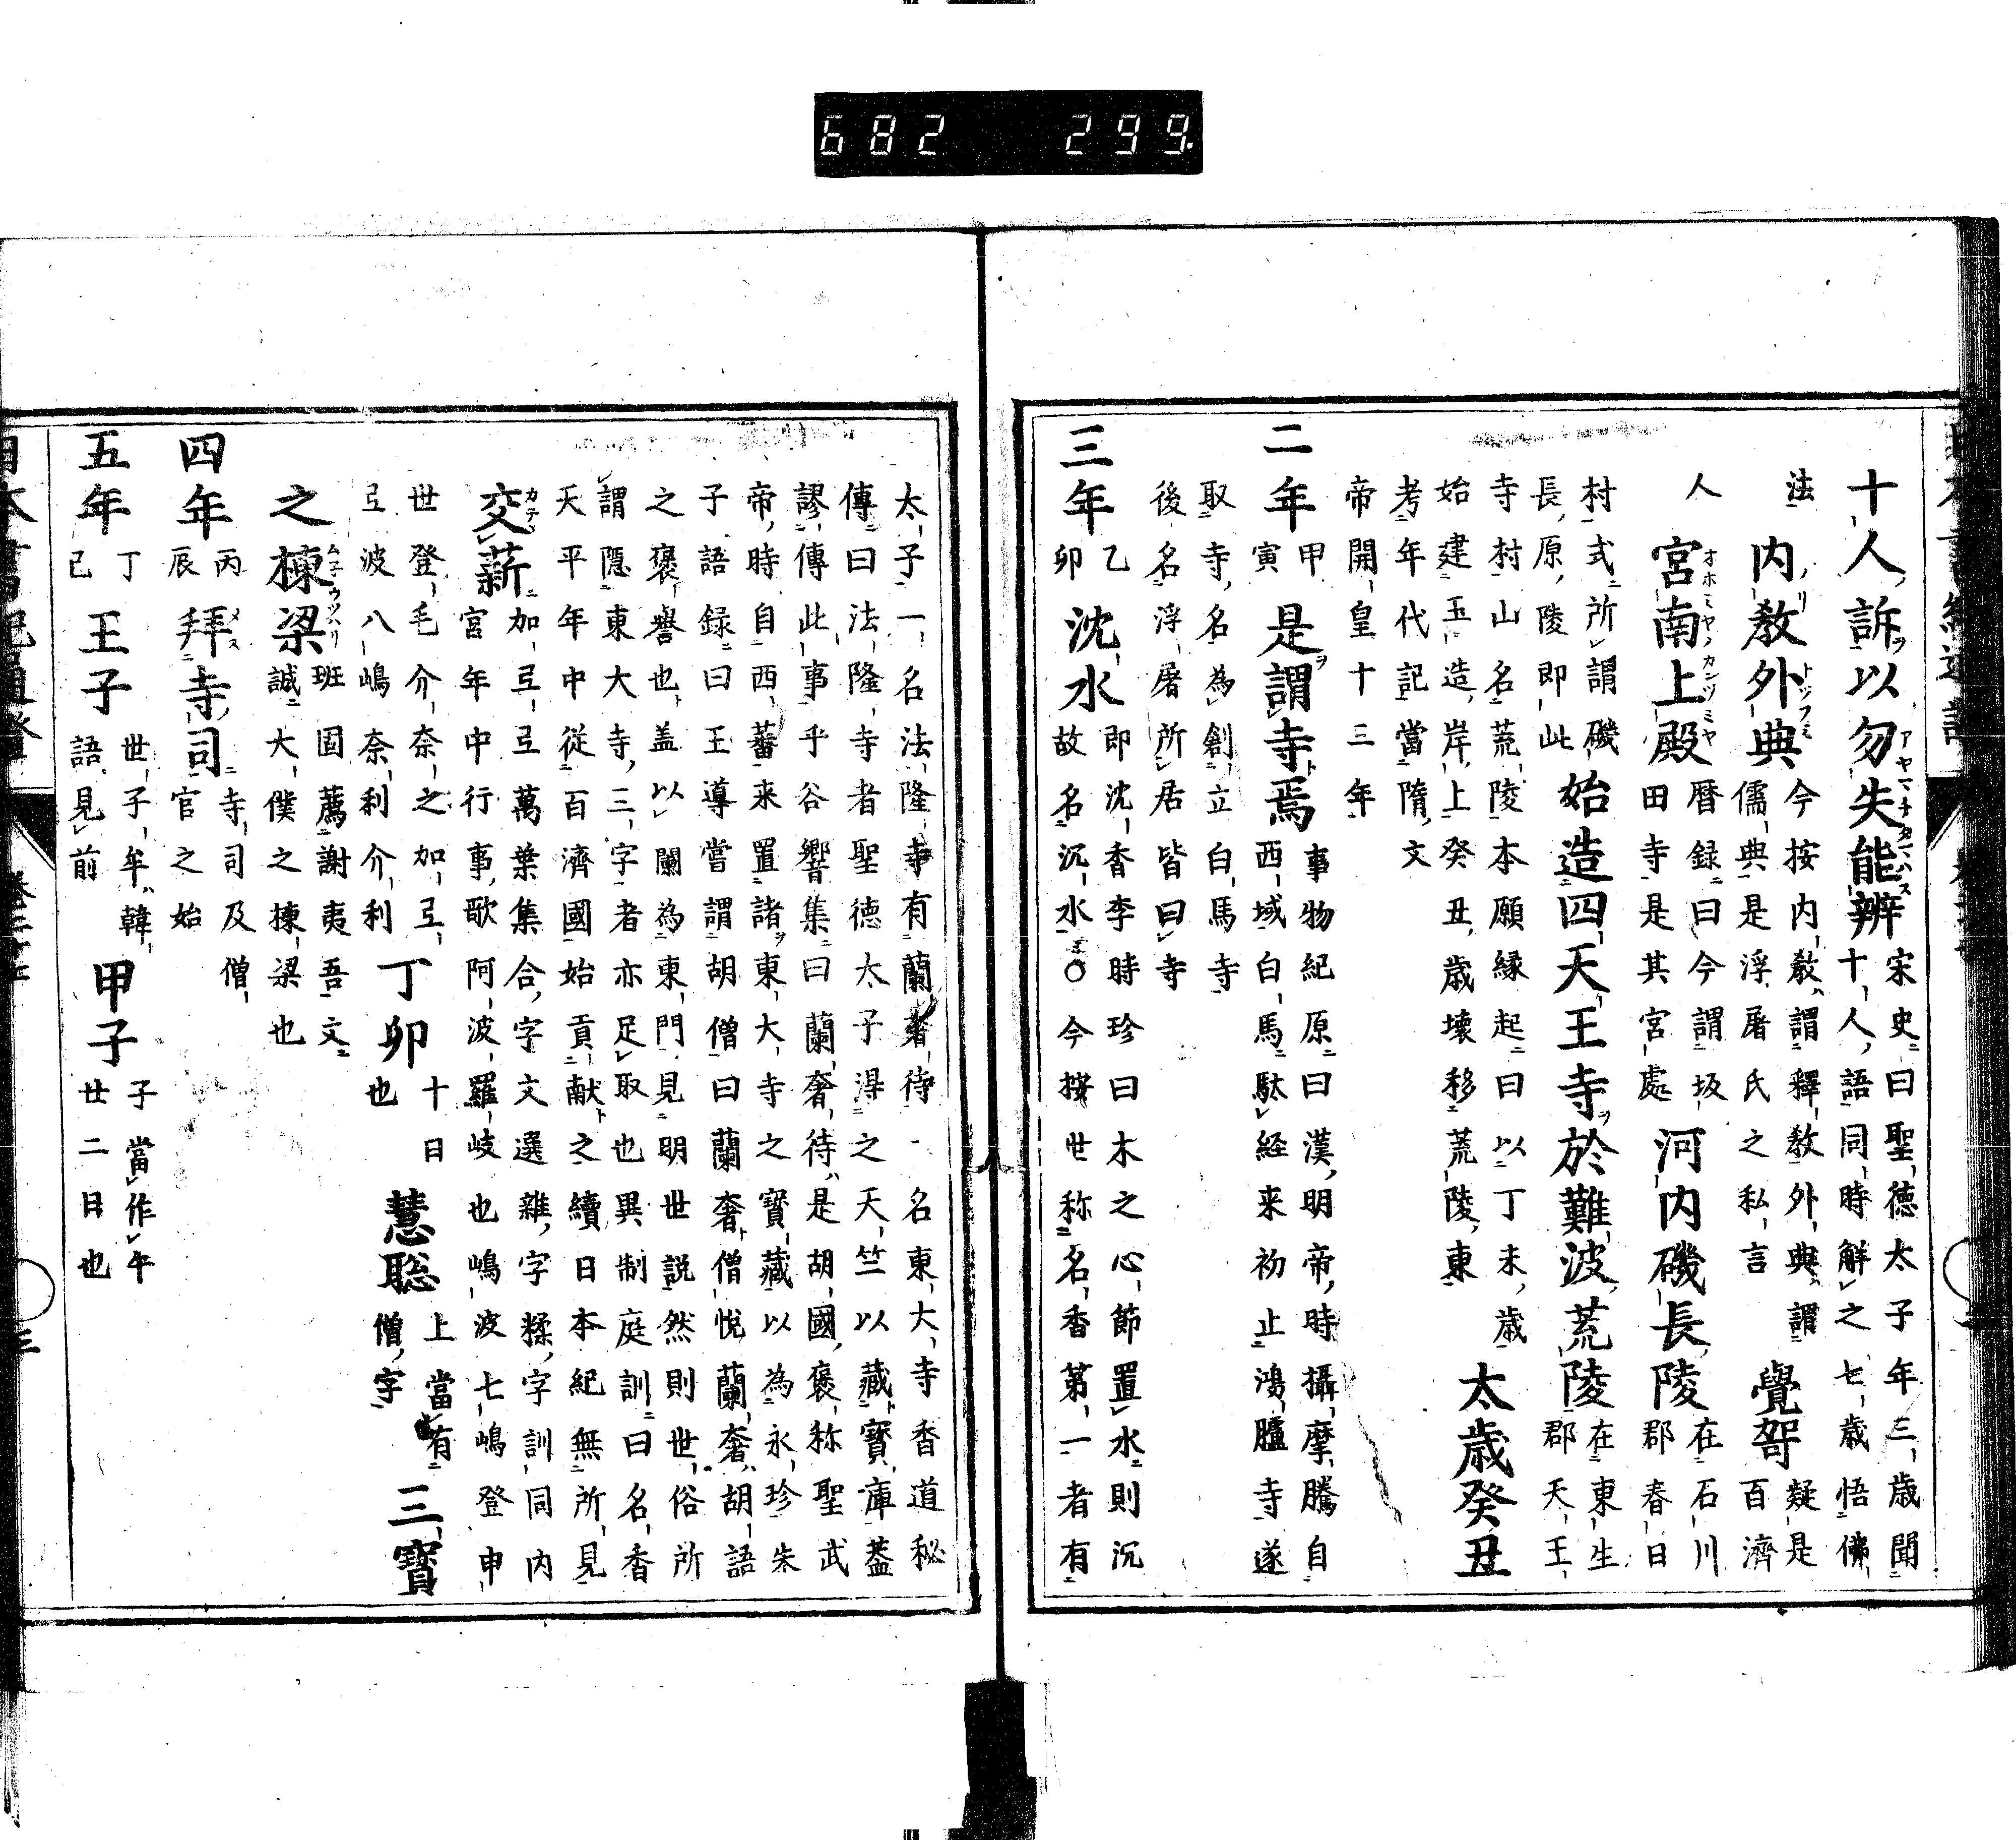 682 299
十人訴以勿失能辨 宋史曰聖德太子年三歳聞
十人語同時解之七歳悟佛
法 内教外典 今按内教謂釋教外典謂
儒典是浮屠氏之私言 覺哿 疑是
百濟
人 宮南上殿 暦録曰今謂坂
田寺是其宮處 河内磯長陵 在石川
郡春日
村式所謂磯
長原陵即此 始造四天王寺於難波荒陵 在東生
郡天王
寺村山名荒陵本願縁起曰以丁未歳
始建玉造岸上癸丑歳壊移荒陵東 太歳癸丑
考年代記當隋文
帝開皇十三年
二年 甲
寅 是謂寺焉 事物紀原曰漢明帝時攝摩騰自
西域白馬駄経来初止鴻臚寺遂
取寺名為創立白馬寺
後名浮屠所居皆曰寺
三年 乙
卯 沈水 即沈香李時珍曰木之心節置水則沉
故名沉水○今按世称名香第一者有
太子一名法隆寺有蘭奢待一名東大寺香道秘
傳曰法隆寺者聖德太子淂之天竺以藏寳庫葢
謬傳此事乎谷響集曰蘭奢待是胡國褒称聖武
帝時自西蕃来置諸東大寺之寳藏以為永珍朱
子語録曰王導嘗謂胡僧曰蘭奢僧悦蘭奢胡語
之褒譽也盖以闌為東門見明世説然則世俗所
謂隠東大寺三字者亦足取也異制庭訓曰名香
天平年中従百濟國始貢献之續日本紀無所見
交薪 加弖萬葉集合字文選雜字糅字訓同内
宮年中行事歌阿波羅岐也嶋波七嶋登申
世登毛介奈之加弖
弖波八嶋奈利介利 丁卯 十日
也 慧聡 上當有
僧字 三寳
之棟梁 班固薦謝夷吾文
誠大僕之棟梁也
四年 丙
辰 拜寺司 寺司及僧
官之始
五年 丁
巳 王子 世子牟韓
語見前 甲子 子當作午
廿二日也